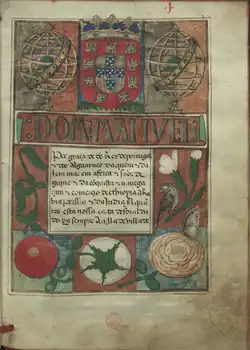 DOM MANUEL
Per graça de ds Rey de portugal
e dos Algarues daquem e da
lem mar em africa e snor de
guine e da comquista e nauega
çam e comercio de ethiopia Ara
bia persia e da India A quã
tos esta nossa carta